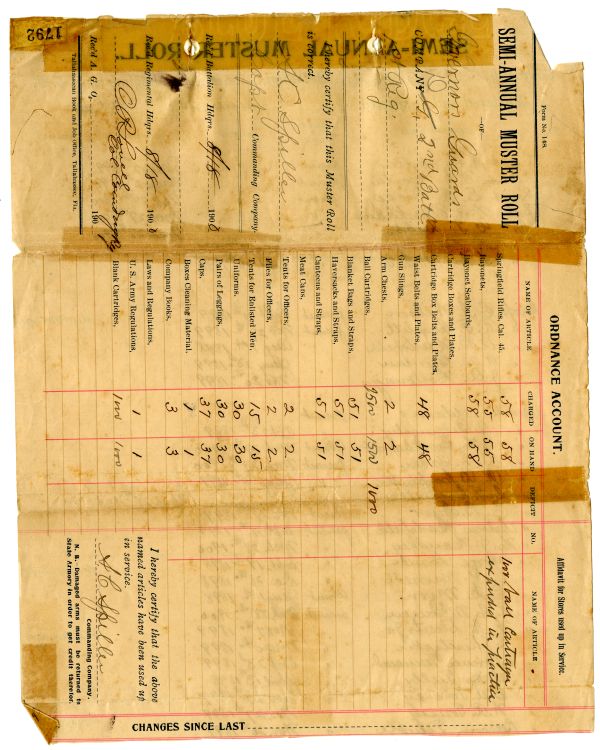 Form No. 148.
SEMI-ANNUAL MUSTER ROLL
—OF—
Governors Guards
COMPANY D, 2nd Batl
1st Reg.
I hereby certify that this Muster Roll
is correct.
S C Spiller
Capt. Commanding Company.
Rec'd Battalion Hdqrs. 8/18 1908
Rec'd Regimental Hdqrs. 8/18 1908
Rec'd A. G. O. 190
Tallahassean Book and Job Office, Tallahassee, Fla.
1792
SEMI-ANNUAL MUSTER ROLL.
ORDNANCE ACCOUNT.
NAME OF ARTICLE CHARGED ON HAND DEFICIT
Springfield Rifles, Cal. 45. 58 58
Bayonets, 55 55
Bayonet Scabbards, 58 58
Cartridge Boxes and Plates,
Cartridge Box Belts and Plates,
Waist Belts and Plates, 48 48
Gun Slings,
Arm Chests, 2 2
Ball Cartridges, 2500 1500 1000
Blanket Bags and Straps, 51 51
Haversacks and Straps, 51 51
Canteens and Straps, 51 51
Meat Cans,
Tents for Officers, 2 2
Flies for Officers, 2 2
Tents for Enlisted Men, 15 15
Uniforms, 30 30
Pairs of Leggings, 30 30
Caps, 37 37
Boxes Cleaning Material, 1 1
Company Books, 3 3
Laws and Regulations,
U. S. Army Regulations, 1 1
Blank Cartridges, 1000 1000
Affidavit for Stores used up in Service.
No. NAME OF ARTICLE
1000 ball
expended in practice
I hereby certify that the above
named articles have been used up
in service.
S C Spiller
Commanding Company.
N. B. Damaged arms must be returned to
State Armory in order to get credit therefor.
CHANGES SINCE LAST